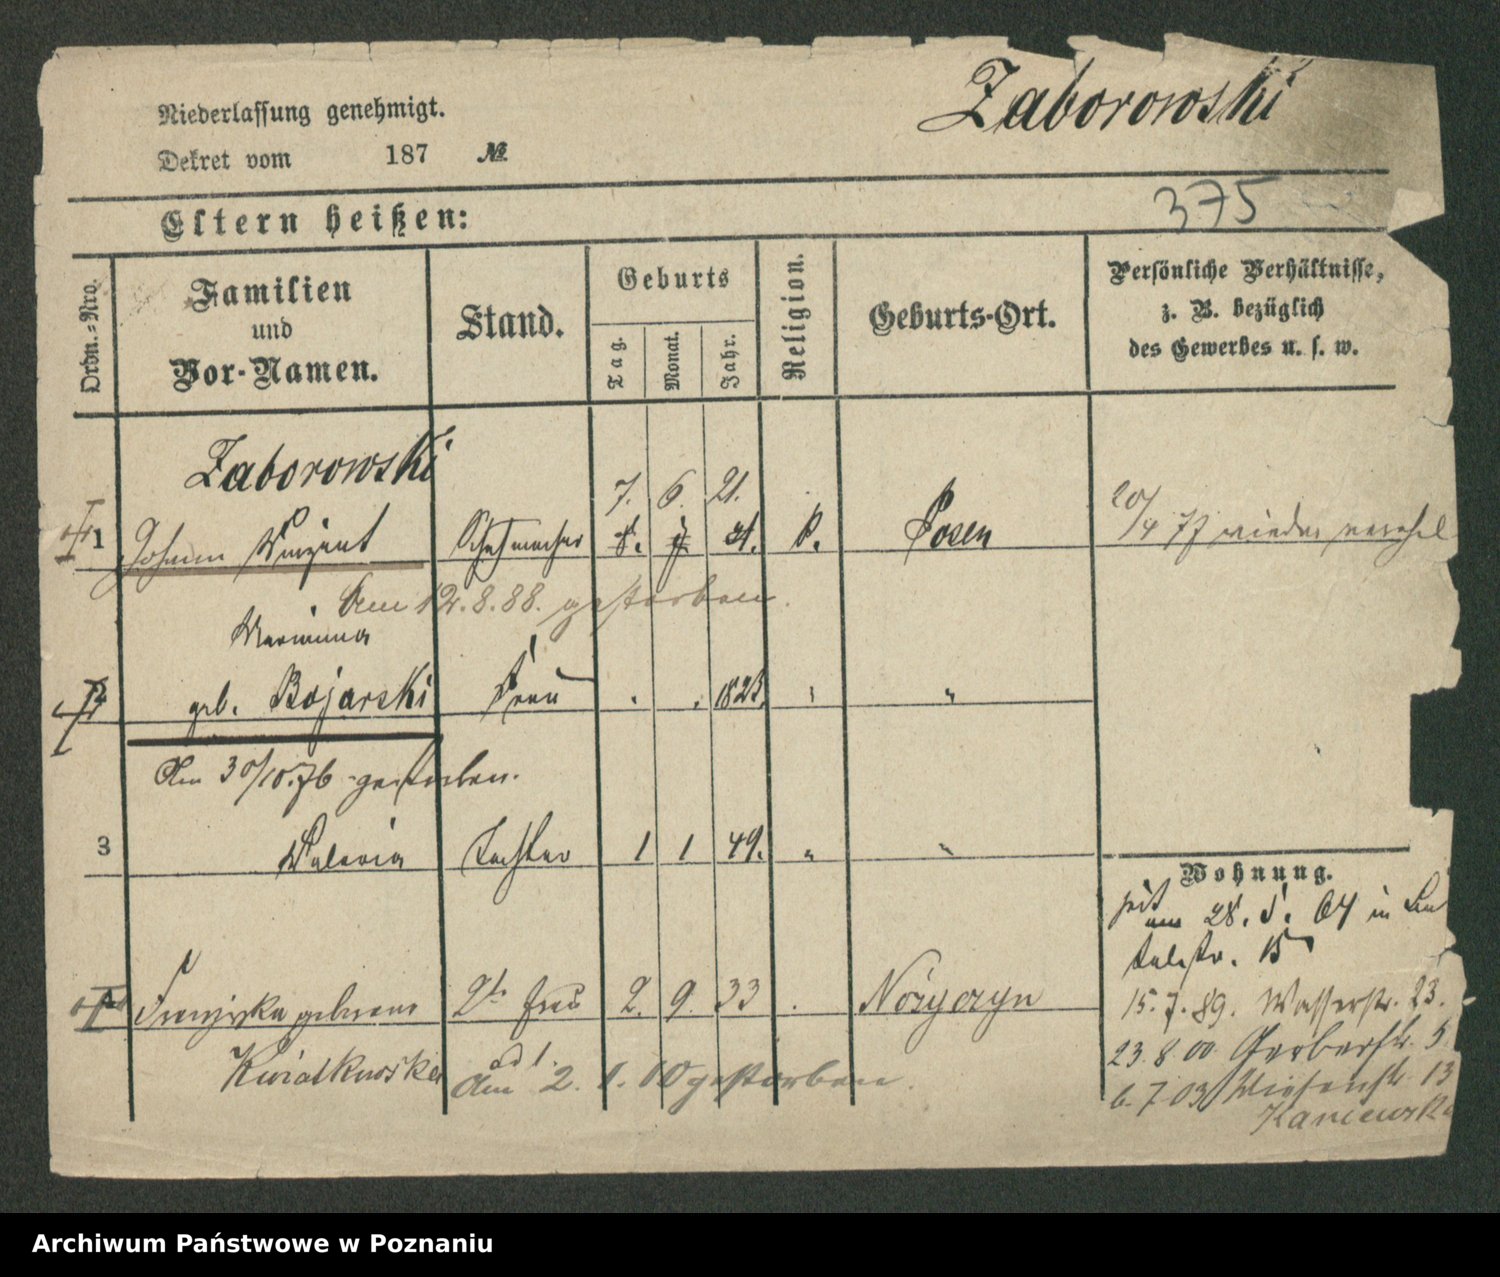 Zaborowski
Niederlassung genehmigt.
Dekret vom 187 №
375
Eltern heißen:
Ordn.-Nro. Familien und Vor-Namen. Stand. Geburts Tag. Monat. Jahr. Religion. Geburts-Ort. Persönliche Verhältnisse, z. B. bezüglich des Gewerbes u. s. w.
Zaborowski
7. 6. 21.
1 Johann Vinzent Schuhmacher K. Posen 20/4 77 wieder verehel
Am 12.8.88. gestorben.
Marianna
2 geb. Bojarski Frau . . 1823. " "
Am 30/10.76 gestorben.
3 Valeria Tochter 1 1 49. " "
Wohnung.
seit
28. 5. 64 in
15
Franziska geborene 2te Frau 2. 9. 33 .
Kwiatkowska ad 1.
Am 2. 1. 10 gestorben.
15.7.89. Wasserstr. 23.
23.8.00 Gerberstr. 5.
6.7.03 Wiesenstr. 13
Archiwum Państwowe w Poznaniu